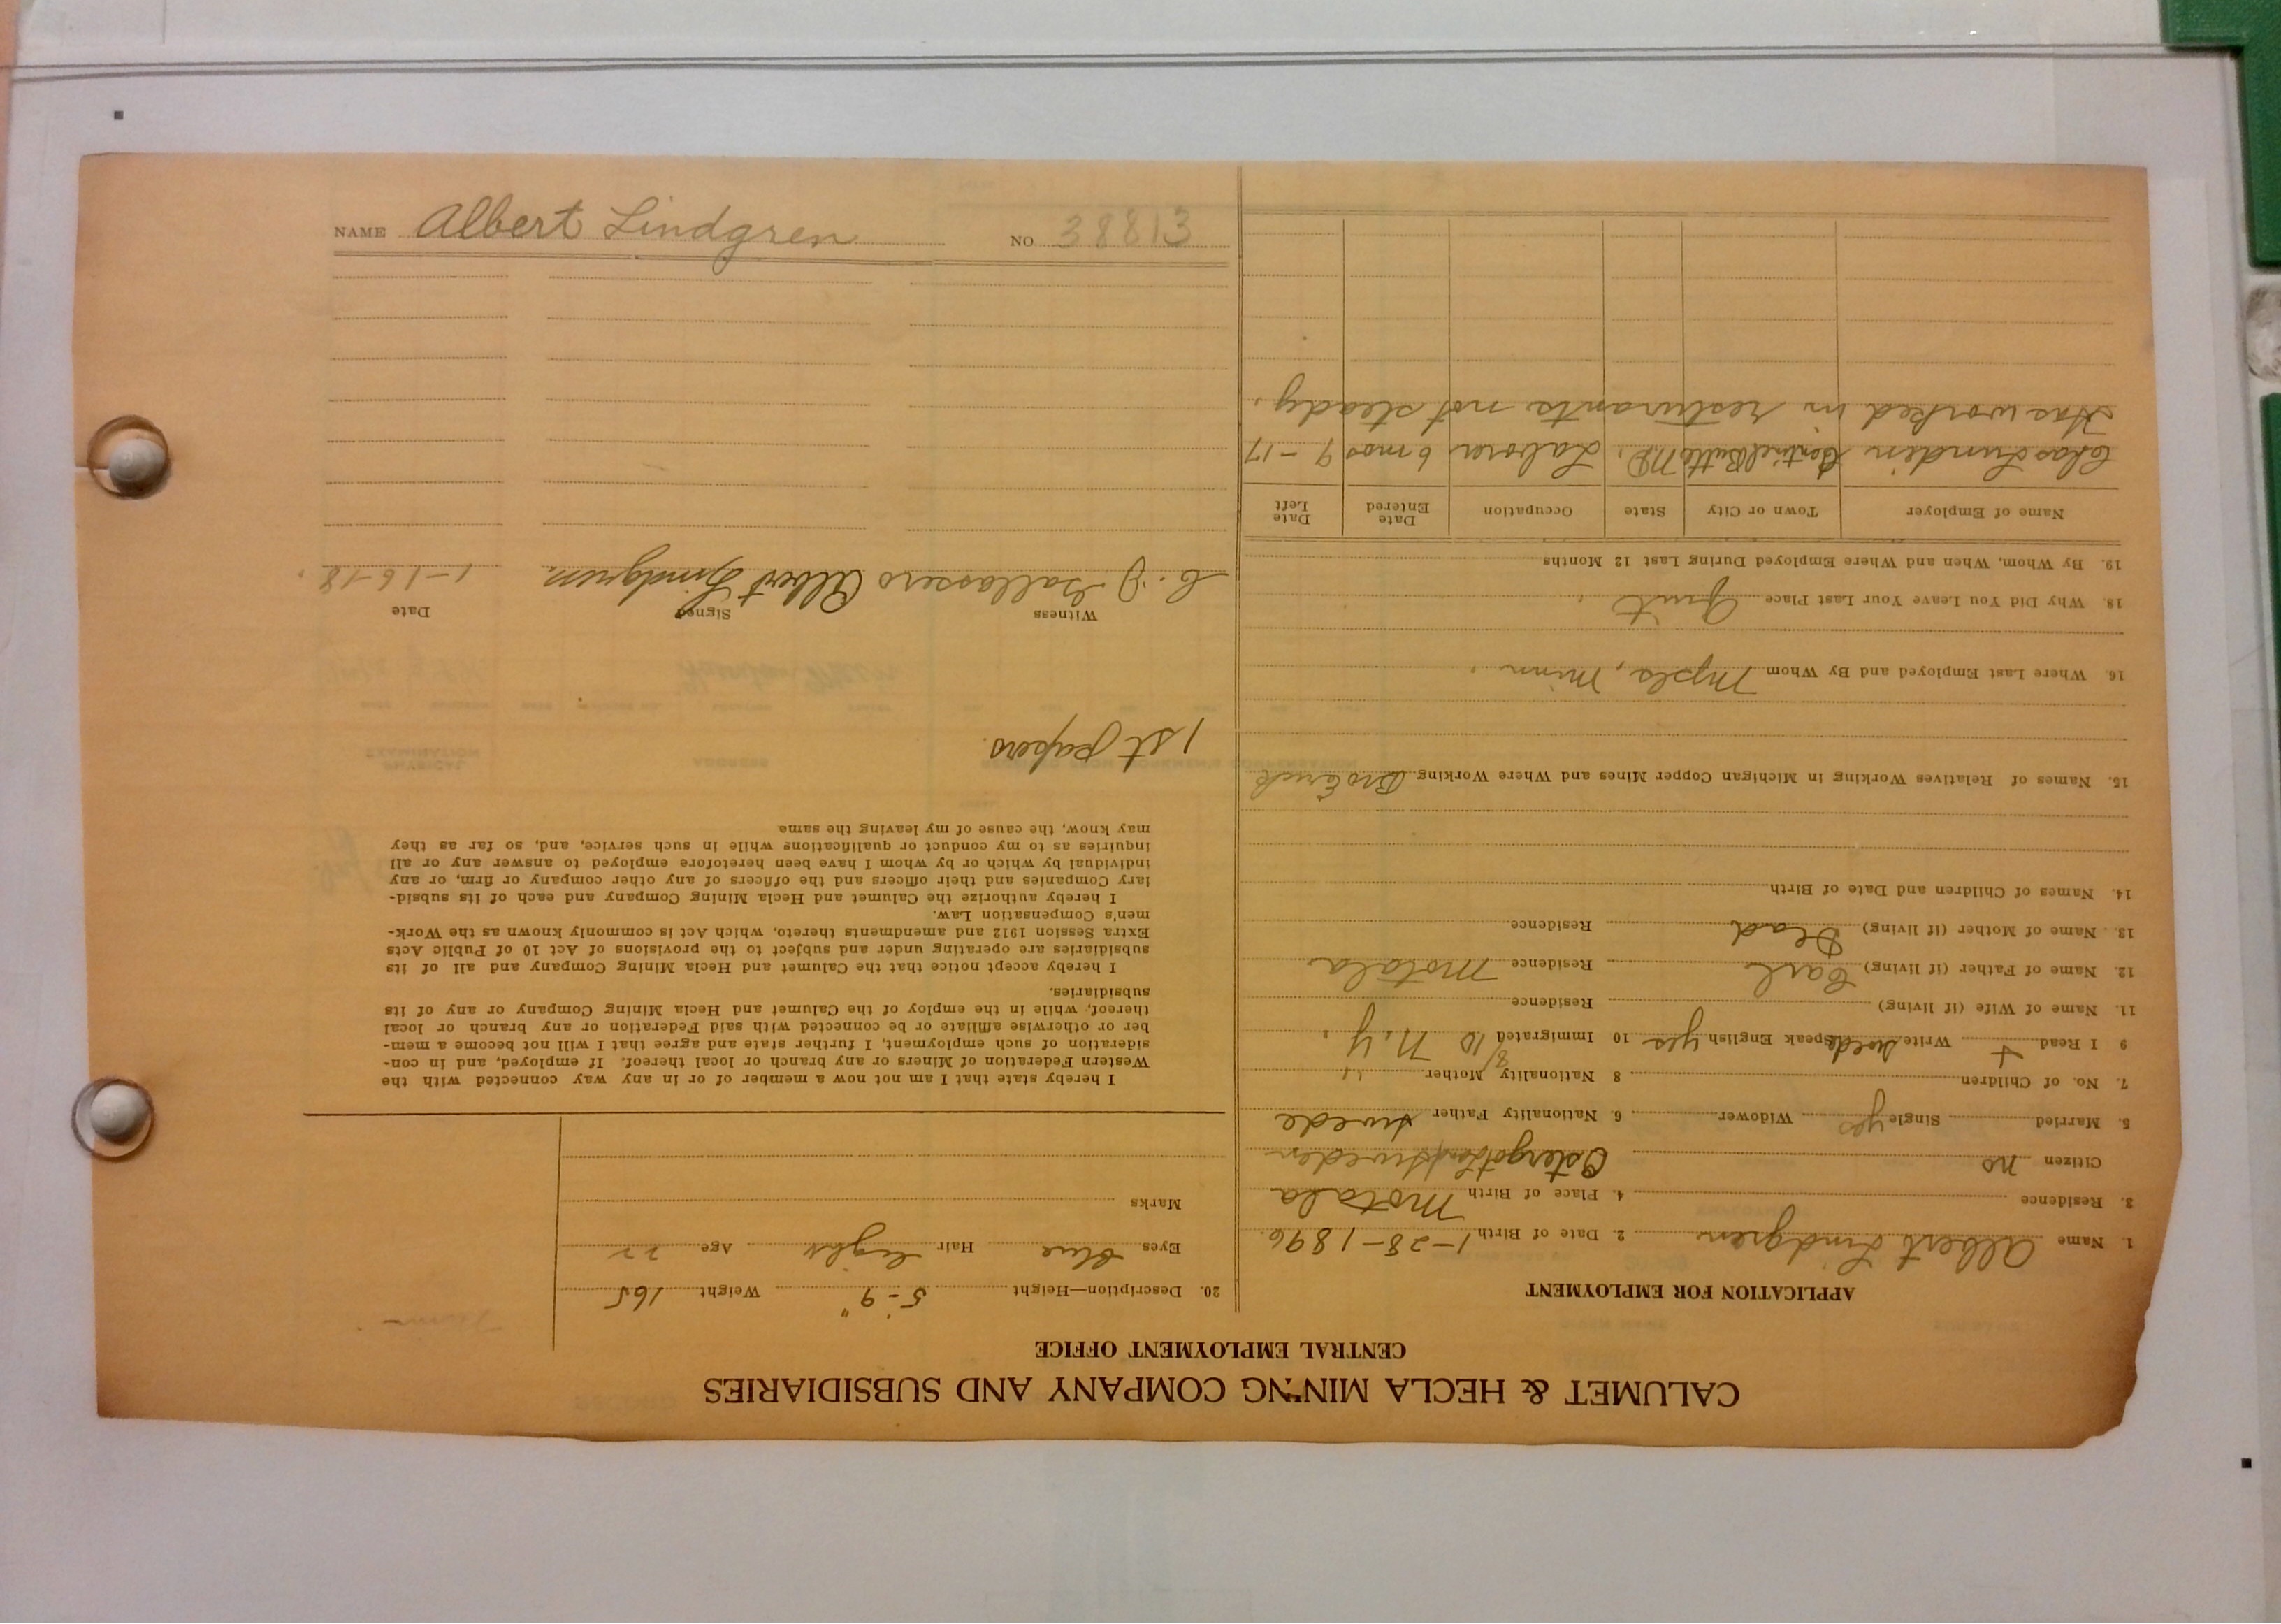 NAME Albert Lindgren NO. 38813
CALUMET & HECLA MINING COMPANY AND SUBSIDIARIES
CENTRAL EMPLOYMENT OFFICE
APPLICATION FOR EMPLOYMENT
1. Name Albert Lindgren 2. Date of Birth 1-28-1896.
3. Residence 4. Place of Birth Motala
Citizen no Ostergotland Sweden
5. Married Single yes Widower 6. Nationality Father Swede
7. No. of Children 8 Nationality Mother "
9 I Read + Write Swede Speak English yes 10 Immigrated 8/10 N.Y.
11. Name of Wife (if living) Residence
12. Name of Father (if living) Carl Residence Motala
13. Name of Mother (if living) Dead Residence
14. Names of Children and Date of Birth
15. Names of Relatives Working in Michigan Copper Mines and Where Working Bro Erick
16. Where Last Employed and By Whom Mpls, Minn.
18. Why Did You Leave Your Last Place Quit.
19. By Whom, When and Where Employed During Last 12 Months
Name of Employer Town or City State Occupation Date Entered Date Left
Chas Lunden Sentinel Butte N.D. Labor 6 mos 9-17
Has worked in resturants not steady.
20. Description—Height 5-9" Weight 165
Eyes blue Hair light Age 22
Marks
I hereby state that I am not now a member of or in any way connected with the
Western Federation of Miners or any branch or local thereof. If employed, and in con-
sideration of such employment, I further state and agree that I will not become a mem-
ber or otherwise affiliate or be connected with said Federation or any branch or local
thereof, while in the employ of the Calumet and Hecla Mining Company or any of its
subsidiaries.
I hereby accept notice that the Calumet and Hecla Mining Company and all of its
subsidiaries are operating under and subject to the provisions of Act 10 of Public Acts
Extra Session 1912 and amendments thereto, which Act is commonly known as the Work-
men's Compensation Law.
I hereby authorize the Calumet and Hecla Mining Company and each of its subsid-
iary Companies and their officers and the officers of any other company or firm, or any
individual by which or by whom I have been heretofore employed to answer any or all
inquiries as to my conduct or qualifications while in such service, and, so far as they
may know, the cause of my leaving the same
1st papers.
Witness Signed Date
C. J. Albert Lindgren. 1-16-18.